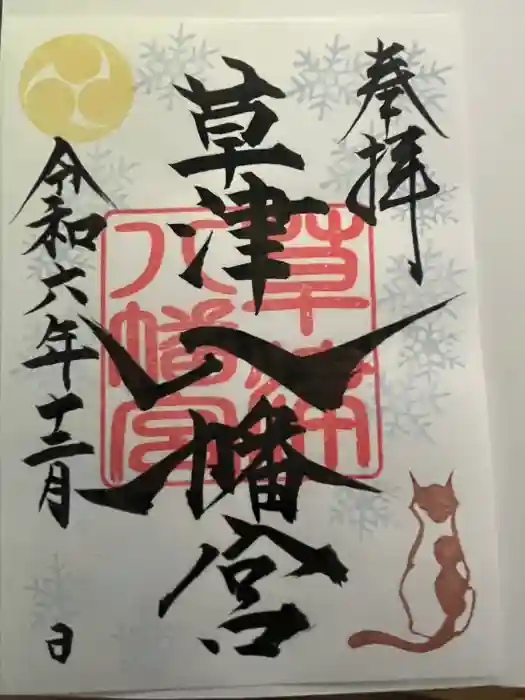 奉拝
草津八幡宮
草津八幡宮
令和六年十二月
日